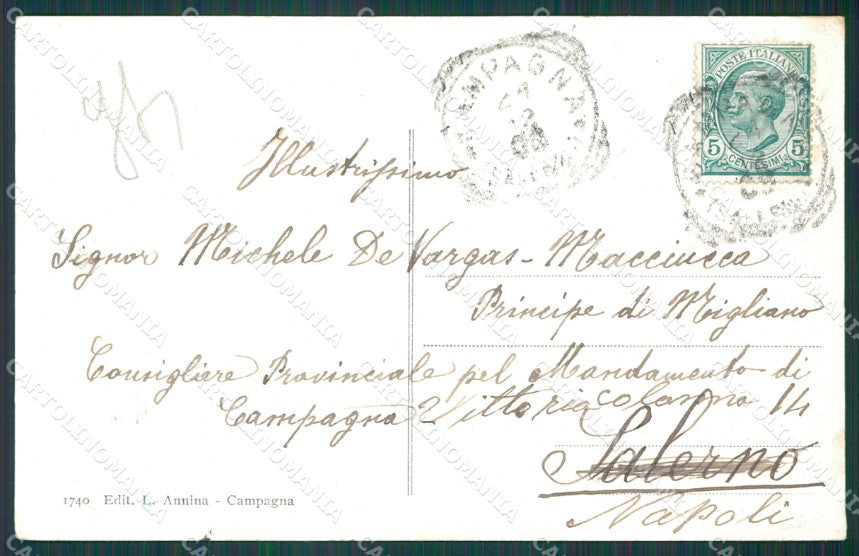 CAMPAGNA
(SALERNO)
POSTE ITALIANE
5 5
CENTESIMI
Illustrissimo
Signor Michele De Vargas-Macciucca
Principe di Migliano
Consigliere Provinciale pel Mandamento di
Campagna - Vittoria Colonna 14
Salerno
Napoli
1740 Edit. L. Annina - Campagna
CARTOLINOMANIA